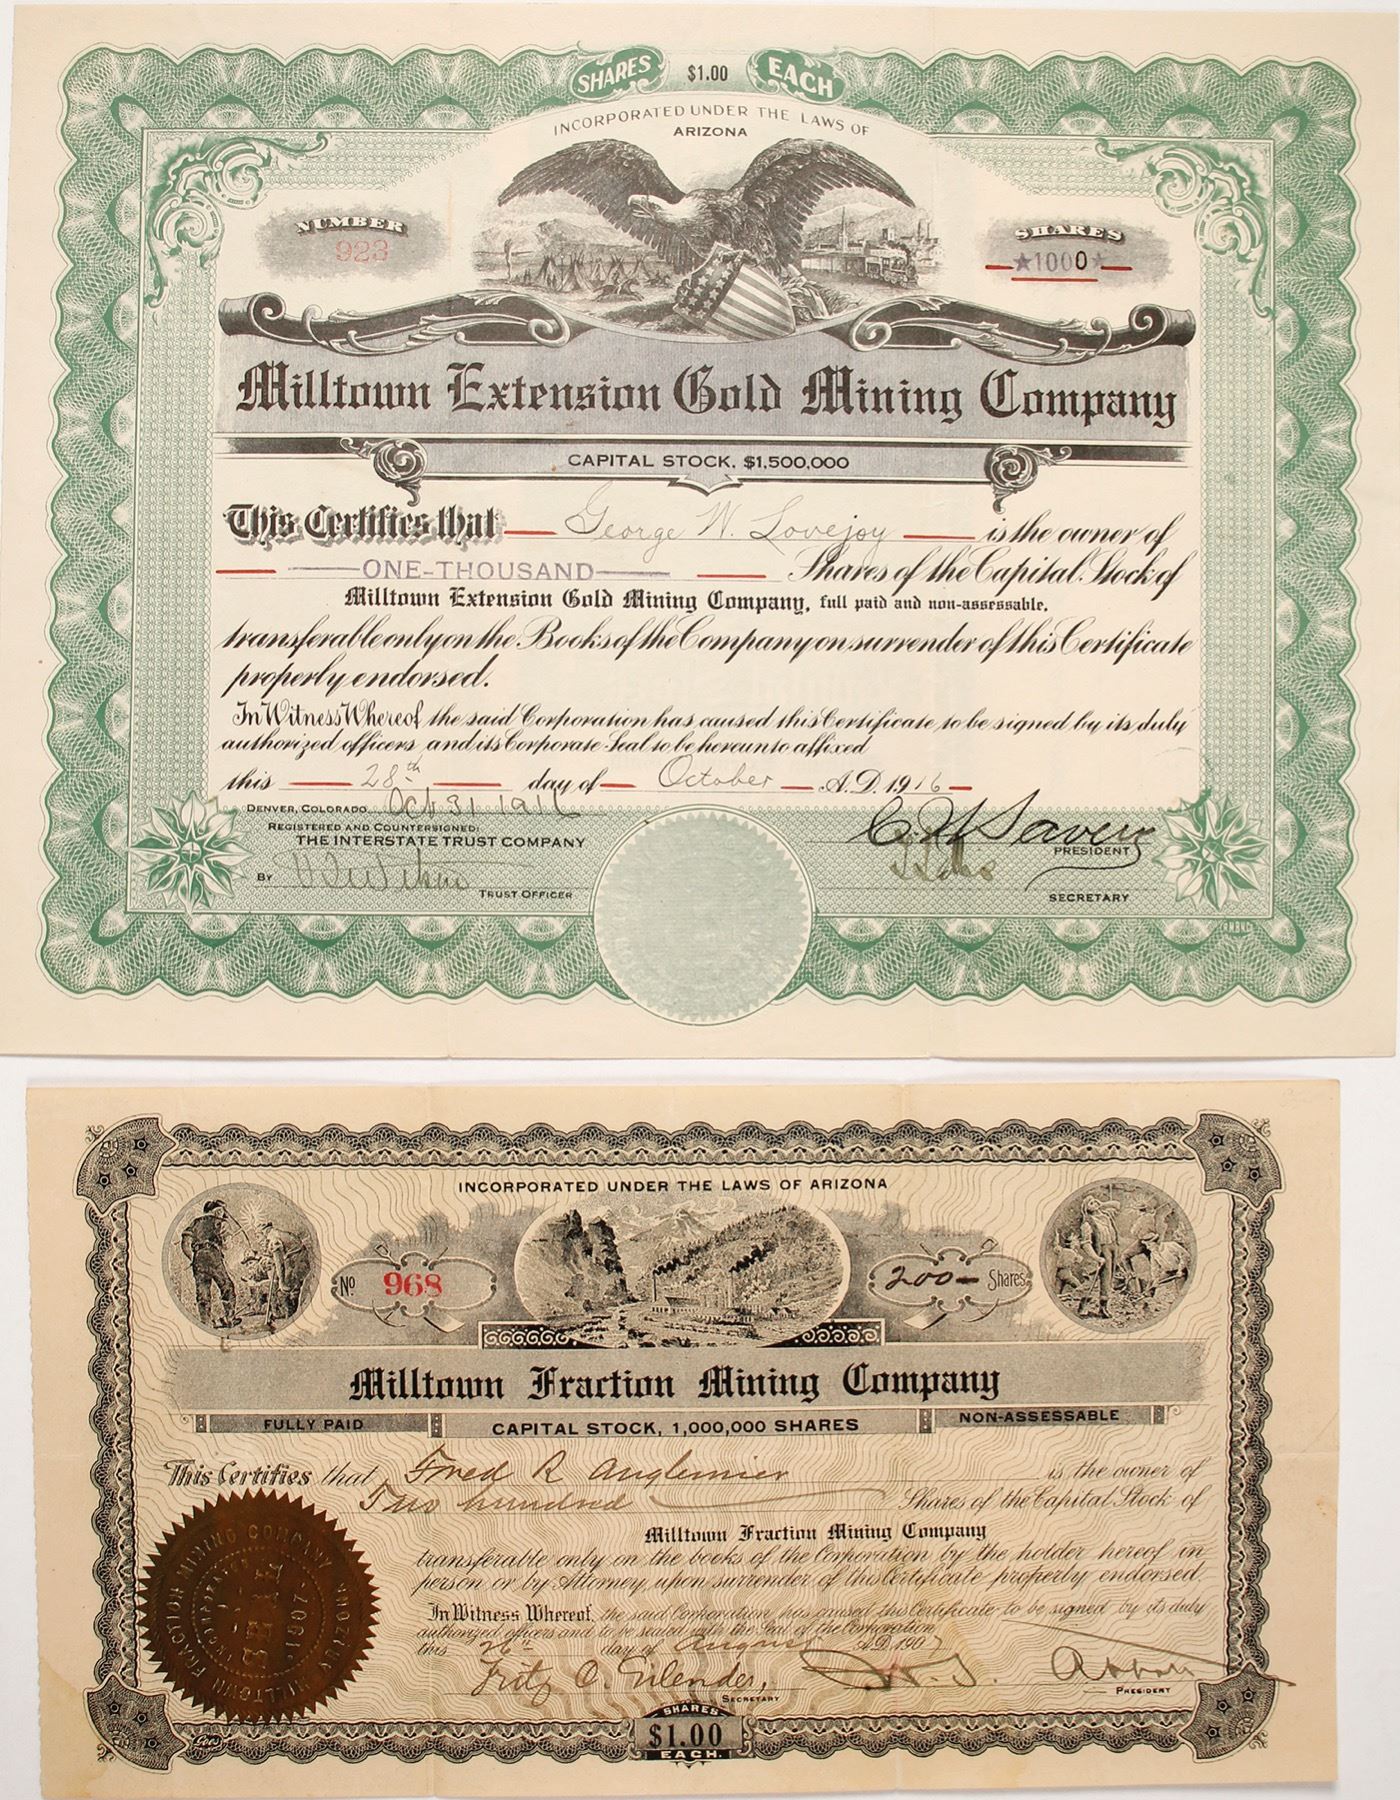 SHARES $1.00 EACH
INCORPORATED UNDER THE LAWS OF
ARIZONA
NUMBER
923
SHARES
★1000★
Milltown Extension Gold Mining Company
CAPITAL STOCK, $1,500,000
This Certifies that George W. Lovejoy is the owner of
ONE-THOUSAND Shares of the Capital Stock of
Milltown Extension Gold Mining Company, full paid and non-assessable,
transferable only on the Books of the Company on surrender of this Certificate
properly endorsed.
In Witness Whereof the said Corporation has caused this Certificate to be signed by its duly
authorized officers and its Corporate Seal to be hereunto affixed
this 28th day of October A.D. 1916
DENVER, COLORADO Oct 31 1916
REGISTERED AND COUNTERSIGNED:
THE INTERSTATE TRUST COMPANY
BY
TRUST OFFICER
PRESIDENT
SECRETARY
INCORPORATED UNDER THE LAWS OF ARIZONA
No 968
200 Shares
Milltown Fraction Mining Company
FULLY PAID CAPITAL STOCK, 1,000,000 SHARES NON-ASSESSABLE
This Certifies that Fred R Anglemier is the owner of
Two hundred Shares of the Capital Stock of
Milltown Fraction Mining Company
transferable only on the books of the Corporation by the holder hereof in
person or by Attorney upon surrender of this Certificate properly endorsed.
In Witness Whereof, the said Corporation has caused this Certificate to be signed by its duly
authorized officers and to be sealed with the Seal of the Corporation
this 26th day of August A.D. 1907
Fritz C. Eilender, SECRETARY
Abbott PRESIDENT
MILLTOWN FRACTION MINING COMPANY ARIZONA
INCORPORATED 1907
SEAL
SHARES
$1.00
EACH.